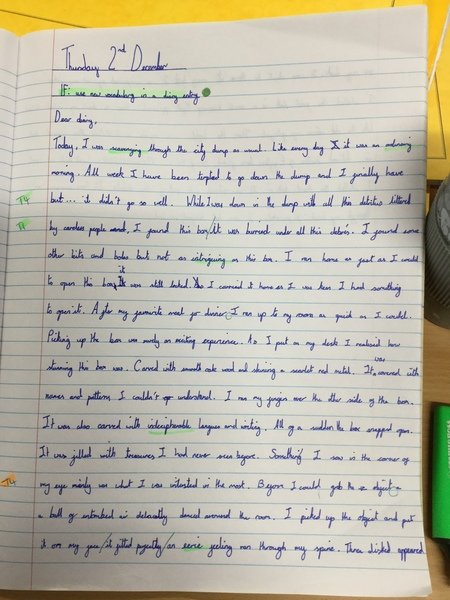 Thursday 2nd December
IF: use new vocabulary in a diary entry
Dear diary,
Today, I was scavenging through the city dump as usual. Like every day it was an ordinary
morning. All week I have been tempted to go down the dump and I finially have
T4 but... it didn't go so well. While I was down in the dump with all this detritus littered
by careless people, I found this box/it was burried under all this debris. I found some
other bits and bobs but not as intreguing as this box. I ran home as fast as I could
to open this box, it was still locked. So I carried it home as I was keen I had something
to open it. After my favourite meal for dinner, I ran up to my room as quick as I could.
Picking up the box was surely an exciting experience. As I put on my desk I realised how
stunning this box was. Carved with smooth oak wood and shining a scarlet red metal. It was covered with
names and patterns I couldn't understand. I ran my fingers over the other side of the box.
It was also carved with indecipherable langues and writing. All of a sudden the box snapped open.
It was filled with treasures I had never seen before. Something I saw in the corner of
T4 my eye mainly was what I was interested in the most. Before I could grab the object
a ball of entombed air delicately danced around the room. I picked up the object and put
it on my face/it fitted perfectly/an eerie feeling ran through my spine. Three disked appeared